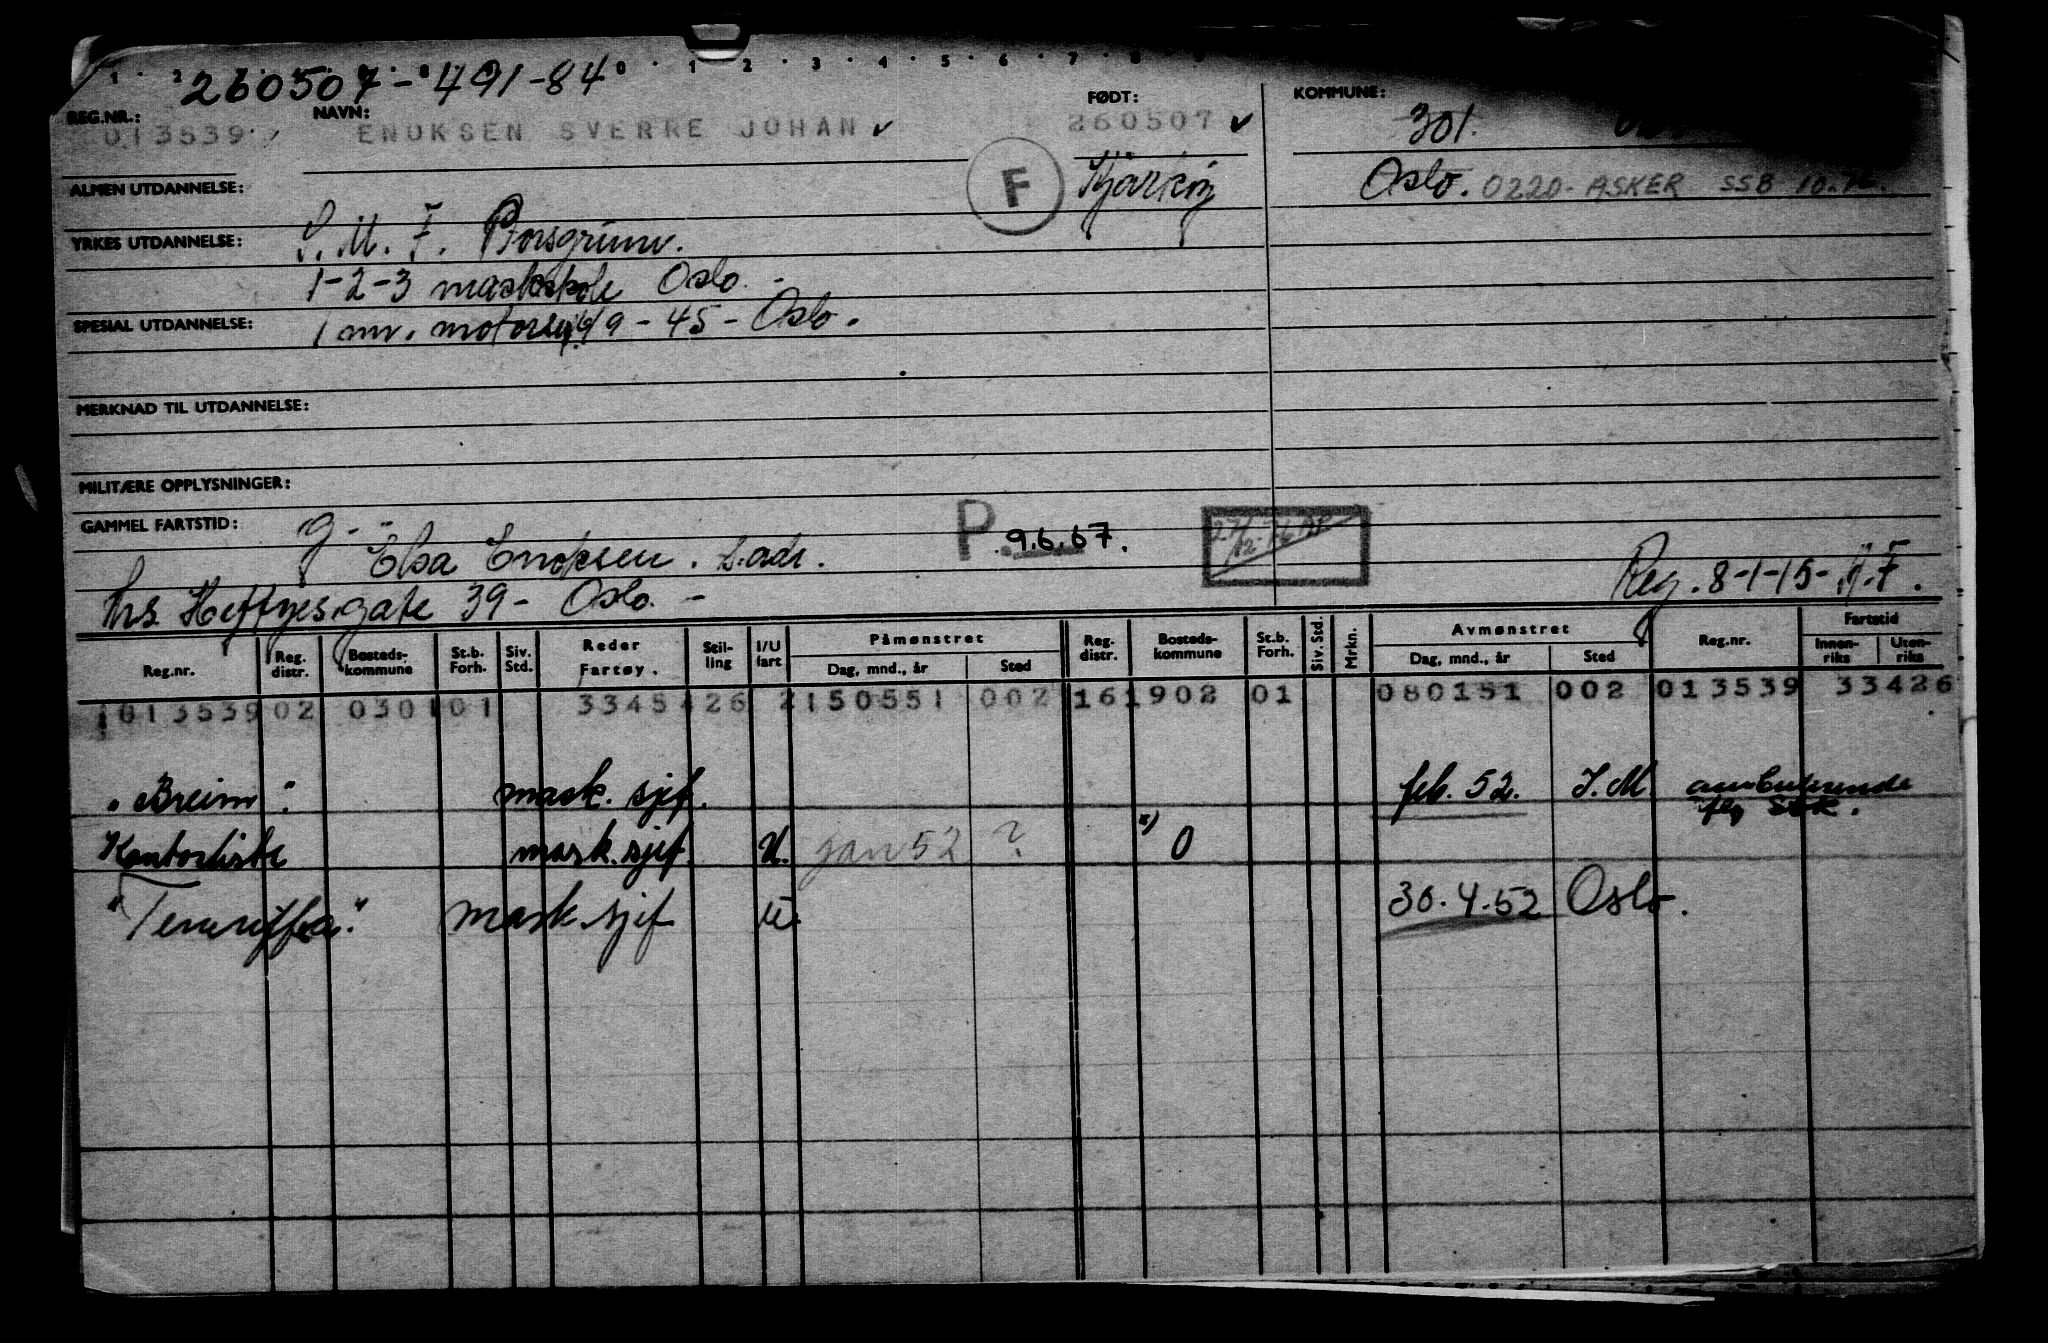 260507-491-84
REG.NR.: NAVN: FØDT: KOMMUNE:
013539 ENOKSEN SVERRE JOHAN 260507 301.
F Oslo. 0220-ASKER SSB
ALMEN UTDANNELSE:
YRKES UTDANNELSE: S.M.F. Porsgrunn.
1-2-3 maskskole Oslo.
SPESIAL UTDANNELSE: 9-45-Oslo.
MERKNAD TIL UTDANNELSE:
MILITÆRE OPPLYSNINGER:
GAMMEL FARTSTID: g- P. 9.6.67.
Elsa Enoksen. s.adr. Reg. 8-1-15-
Ths. Heftyes gate 39- Oslo.-
Reg.nr. Reg. distr. Bosteds-kommune St.b. Forh. Siv. Std. Reder Fartøy. Stil-ling I/U fart Påmønstret Dag, mnd., år Sted Reg. distr. Bosteds-kommune St.b. Forh. Siv. Std. Mrkn. Avmønstret Dag, mnd., år Sted Reg.nr. Fartstid Innen-riks Uten-riks
013539 02 0301 01 3345 426 2 150551 002 161902 01 080151 002 013539 33426
"Breim" mask. sjef. feb. 52. J.M.
mask. sjef U. jan 52 ? x) O
"Teneriffa." mask. sjef U. 30.4.52 Oslo.